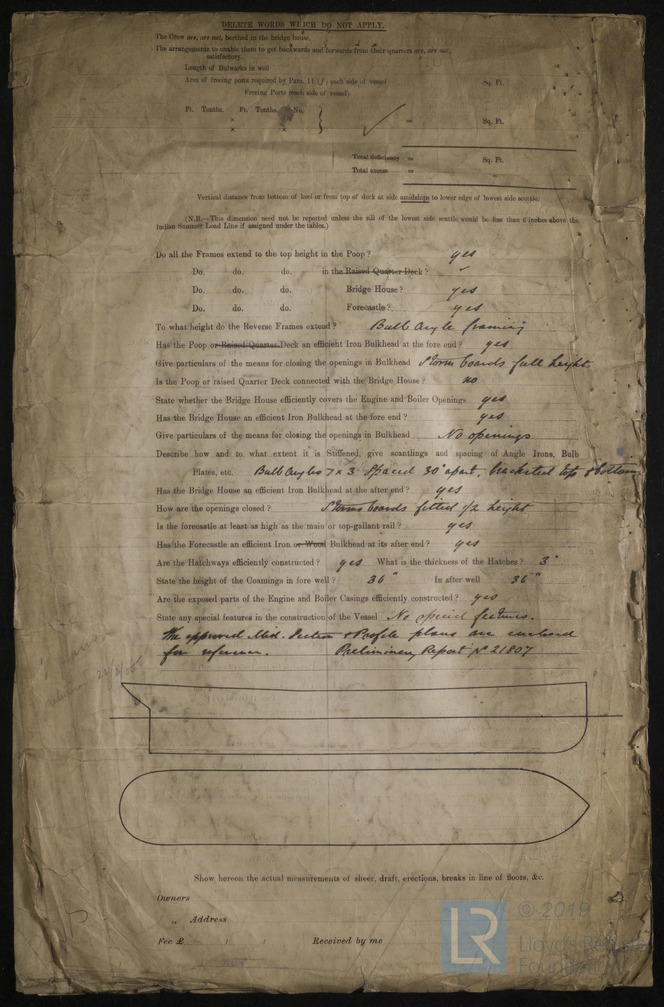 DELETE WORDS WHICH DO NOT APPLY.
The Crew are, are not, berthed in the bridge house.
The arrangements to enable them to get backwards and forwards from their quarters are, are not,
satisfactory.
Length of Bulwarks in well
Area of freeing ports required by Para. each side of vessel Sq. Ft.
Freeing Ports each side of vessel:
Ft. Tenths. Ft. Tenths. No.
× = Sq. Ft.
× ×
Total deficiency = Sq. Ft.
Total excess =
Vertical distance from bottom of keel or from top of deck at side amidships to lower edge of lowest side scuttle:
(N.B.—This dimension need not be reported unless the sill of the lowest side scuttle would be less than 6 inches above the
Indian Summer Load Line if assigned under the tables.)
Do all the Frames extend to the top height in the Poop? yes
Do. do. do. in the Raised Quarter Deck? "
Do. do. do. Bridge House? yes
Do. do. do. Forecastle? yes
To what height do the Reverse Frames extend? Bulb Angle framing
Has the Poop or Raised Quarter Deck an efficient Iron Bulkhead at the fore end? yes
Give particulars of the means for closing the openings in Bulkhead Storm boards full height
Is the Poop or raised Quarter Deck connected with the Bridge House? no
State whether the Bridge House efficiently covers the Engine and Boiler Openings yes
Has the Bridge House an efficient Iron Bulkhead at the fore end? yes
Give particulars of the means for closing the openings in Bulkhead No openings
Describe how and to what extent it is Stiffened, give scantlings and spacing of Angle Irons, Bulb
Plates, etc. Bulb Angles 7 x 3 Spaced 30" apart, bracketed top & bottom
Has the Bridge House an efficient Iron Bulkhead at the after end? yes
How are the openings closed? Storm boards fitted 1/2 height
Is the forecastle at least as high as the main or top-gallant rail? yes
Has the Forecastle an efficient Iron or Wood Bulkhead at its after end? yes
Are the Hatchways efficiently constructed? yes What is the thickness of the Hatches? 3"
State the height of the Coamings in fore well? 36" In after well 36"
Are the exposed parts of the Engine and Boiler Casings efficiently constructed? yes
State any special features in the construction of the Vessel No special features.
The approved Mid. Section & Profile plans are enclosed
for reference. Preliminary Report No 21807
Show hereon the actual measurements of sheer, draft, erections, breaks in line of floors, &c.
Owners
„ Address
Fee £ Received by me
LR © 2019
Lloyd's Register
Foundation